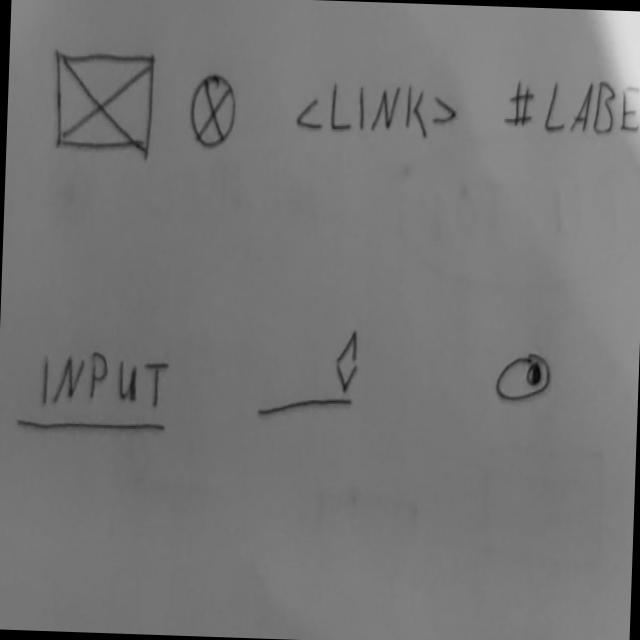 <LINK> #LABE
INPUT